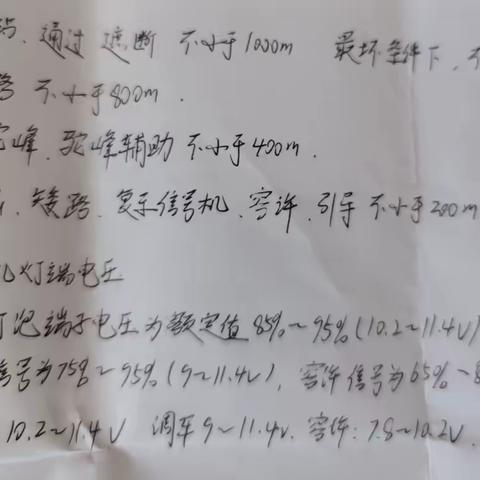 站、通过 遮断 不小于1000m 最坏条件下,不
路 不小于800m.
驼峰、驼峰辅助 不小于400m.
矮路、复示信号机、容许、引导 不小于200m
机灯端电压
灯泡端子电压为额定值85%~95%(10.2~11.4V)
信号为75%~95%(9~11.4V),容许信号为65%~8
10.2~11.4V 调车9~11.4V. 容许:7.8~10.2V.